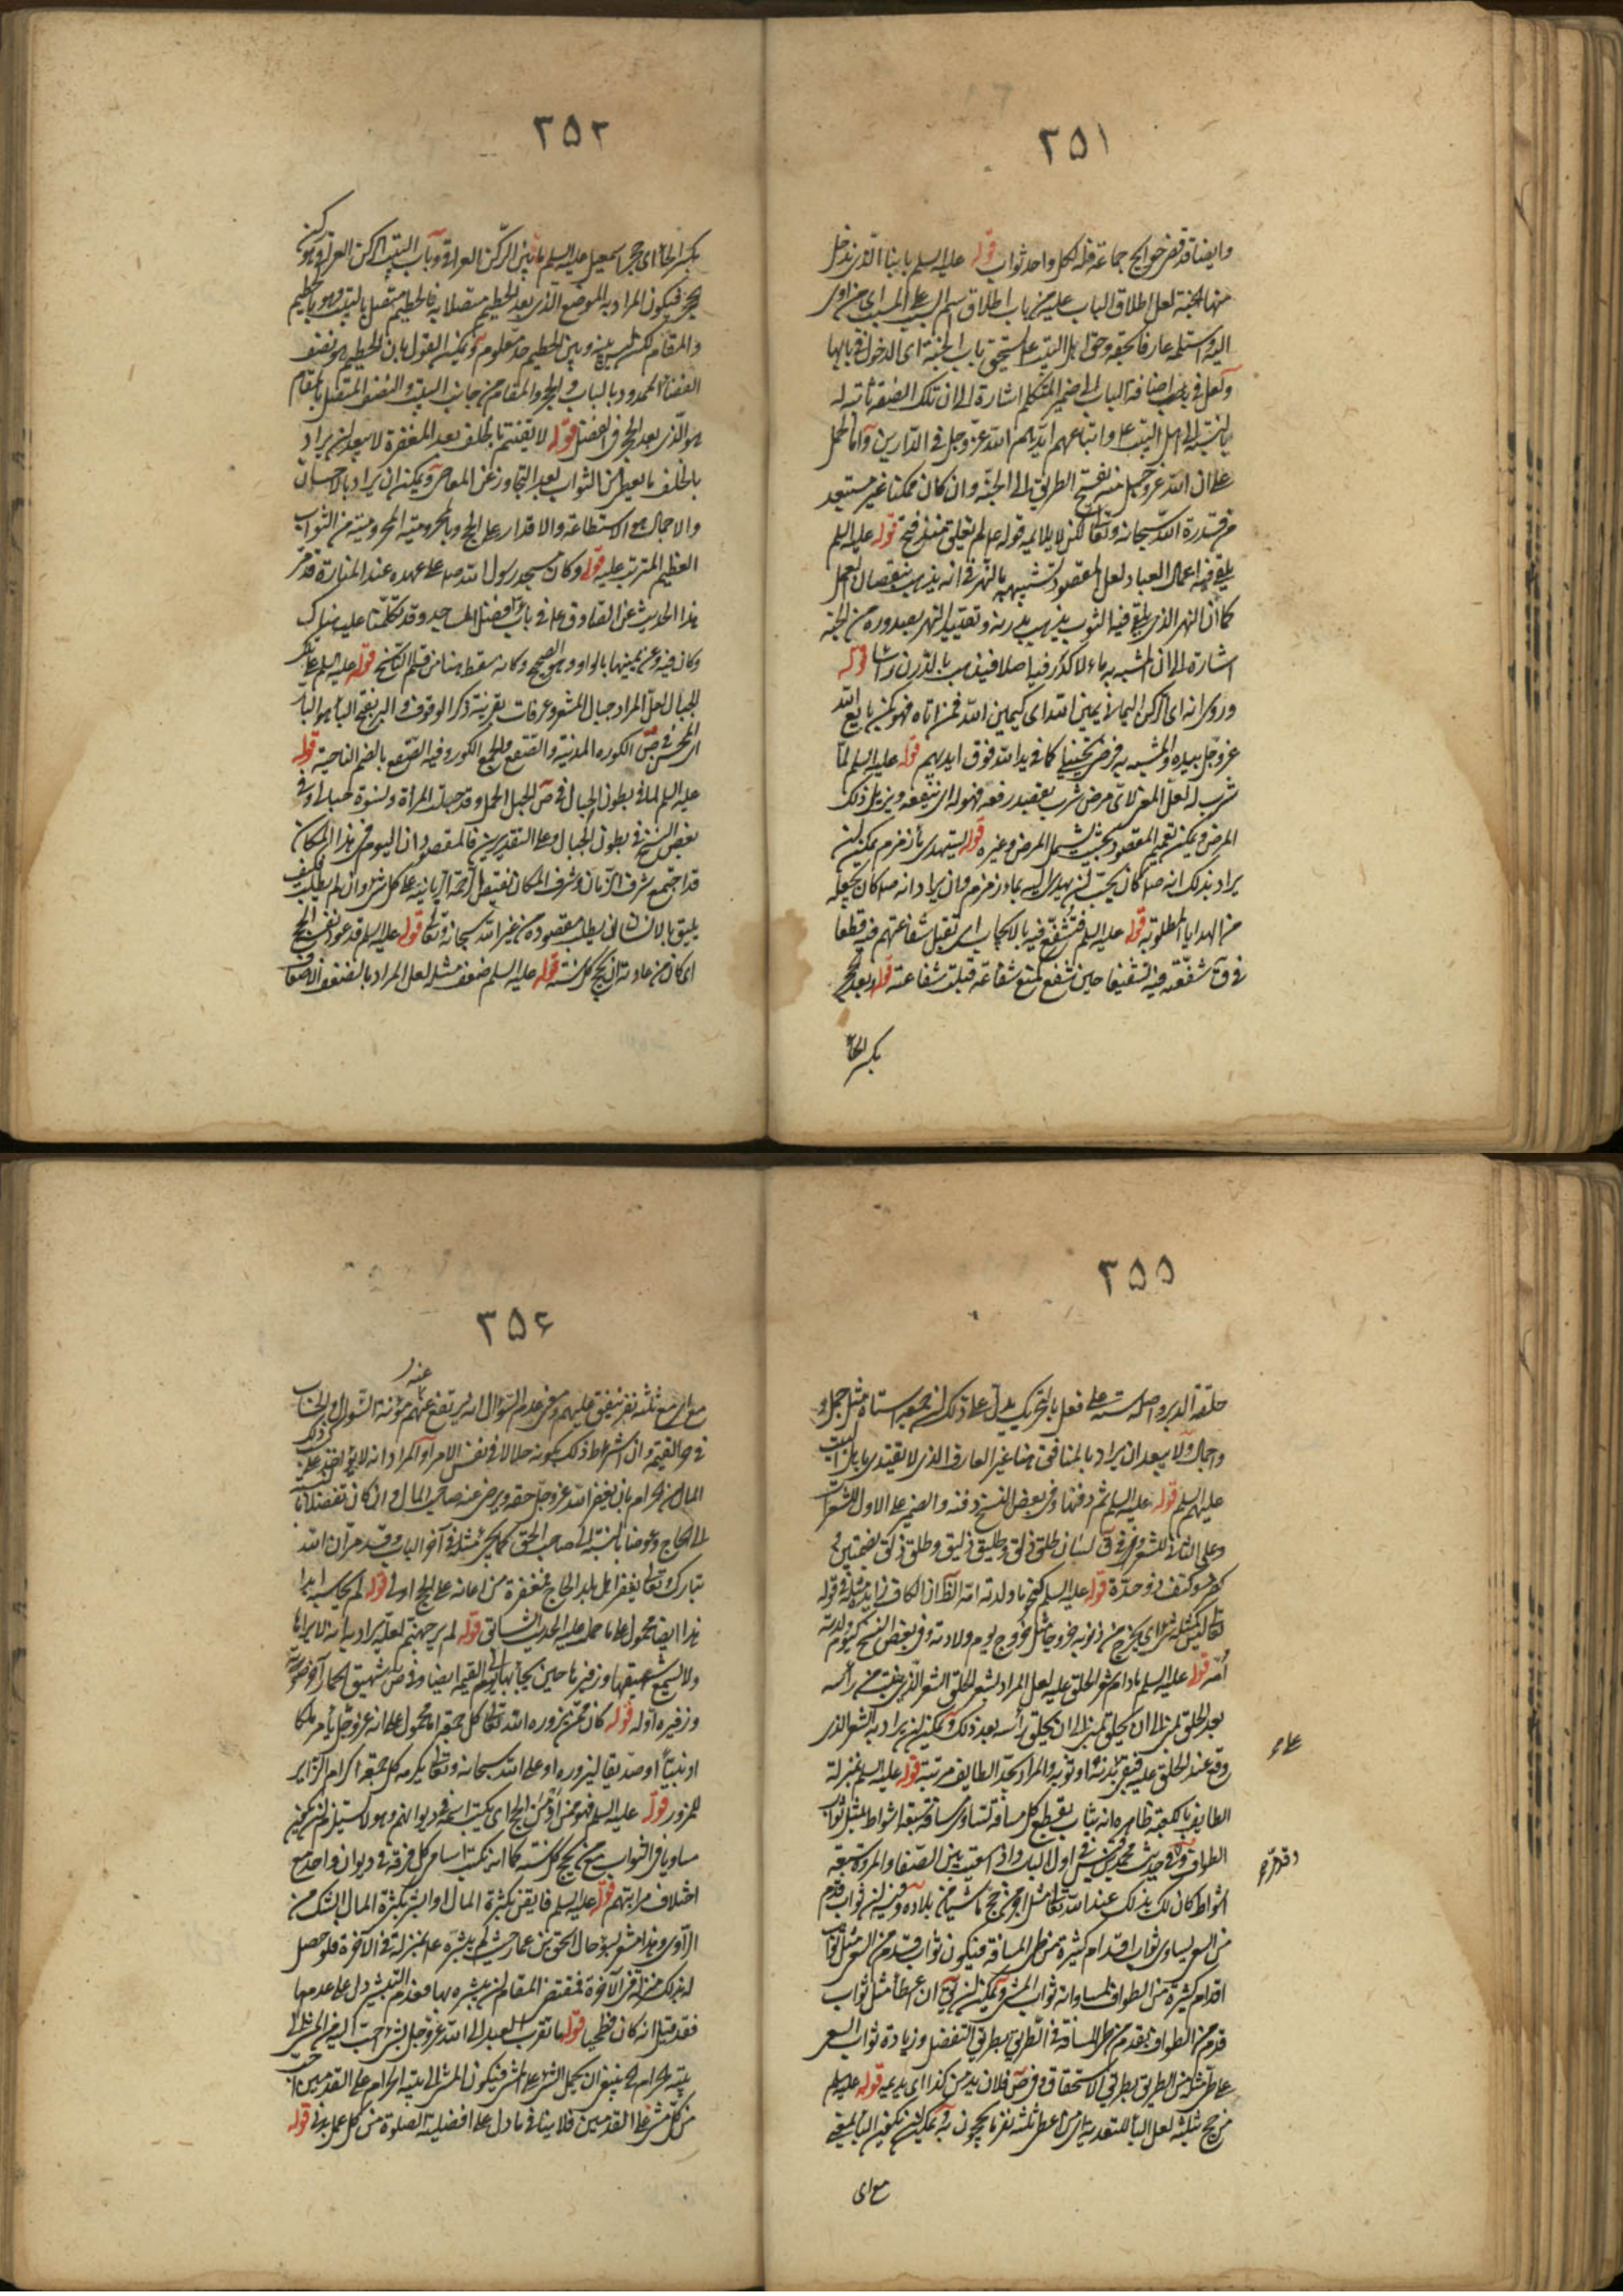 ٢٥١
وايضا قد قضى حوايج جماعة فله لكل واحد ثواب قوله عليه السلم بابنا الذى ندخل
منها الجنة لعل اطلاق الباب عليه من باب اطلاق اسم السبب على المسبب اى من اوى
اليه واستلمه عارفا بحقه وحق اهل البيت ع استحق باب الجنة اى الدخول فى بابها
ولعل فى اضافة الباب الى ضمير المتكلم اشارة الى ان تلك الصفة ثابتة له
بالنسبة الى اهل البيت ع واتباعهم ايدهم الله عز وجل فى الدارين واما الحمل
على ان الله عز وجل منه يفتح الطريق الى الجنة وان كان ممكنا غير مستبعد
من قدرة الله سبحانه وتعالى لكن لا يلايمه قوله ع لم يغلق منذ فتح قوله عليه السلم
يلقى فيه اعمال العباد لعل المقصود تشبيهه بالنهر فى انه يذهب بنقصان العمل
كما ان النهر الذى يلقى فيه الثوب يذهب بدرنه وتقييد النهر بصدوره من الجنة
اشارة الى ان المشبه به ماء لا كدر فيه اصلا فيذهب بالدرن قوله
وروى انه اى الركن اليمانى يمين الله اى كيمين الله فمن اتاه فهو كمن بايع الله
عز وجل بيده والمشبه به فرضى تخييلى كما فى يد الله فوق ايديهم قوله عليه السلم لما
شرب له لعل المعنى لاى مرض شرب بقصد رفعه فهو له اى ينفعه ويزيل ذلك
المرض ويمكن تعميم المقصود بحيث يشمل المرض وغيره قوله يستهدى ماء زمزم يمكن ان
يراد بذلك انه صلى كان يحب ان يهدى اليه ماء زمزم وان يراد انه صلى كان يجعله
من الهدايا المطلوبة قوله عليه السلم فتشفع فيه بالايجاب اى تقبل شفاعتهم فيه قطعا
فى ق شفعته فيه تشفيعا حين شفع كمنع شفاعة قبلت شفاعته قوله بعد الحجر
بكسر الحاء
٢٥٢
بكسر الحاء اى حجر اسمعيل عليه السلم ما بين الركن العراقى وباب البيت الركن العراقى هو ركن
الحجر فيكون المراد به الموضع الذى بعد الحطيم متصلا به فالحطيم متصل بالبيت وهو بالحطيم
والمقام لكن ليس بينه وبين الحطيم حد معلوم ويمكن القول بان الحطيم هو نصف
الفضاء المحدود بالباب والحجر والمقام من جانب البيت والنصف المتصل بالمقام
هو الذى بعد الحجر فى الفضل قوله لا يغتنم ما يخلف بعد المغفرة لا يبعد ان يراد
بالخلف ما يعطى من الثواب بعد التجاوز عن المعاصى ويمكن ان يراد بالاحسان
والاجمال هو الاستطاعة والاقدار على الحج وبالمحرومية المحرومية من الثواب
العظيم المترتب عليه قوله وكان مسجد رسول الله صلى على عهده عند المنارة قد مر
هذا الحديث عن الصادق ع فى باب فضل المساجد وقد تكلمنا عليه هناك
وكان فيه وعن يمينها بالواو وهو الصحيح وكانه سقط هنا من قلم الناسخ قوله عليه السلم على تلك
الجبال لعل المراد جبال المشعر وعرفات بقرينة ذكر الوقوف والبر بفتح الباء هو البار
اى المحسن فى ص الكورة المدينة والصقع والجمع الكور وفيه الصقع بالضم الناحية قوله
عليه السلم لما فى بطون الحبال فى ص الحبل الحمل وقد حبلت المرأة ونسوة حبالى وفى
بعض النسخ فى بطون الجبال وعلى التقديرين فالمقصود ان اليوم فى هذا المكان
قد اجتمع شرف الزمان وشرف المكان
يليق بالانسان ان يطلب مقصوده من غير الله سبحانه وتعالى قوله عليه السلم قد عود نفسه الحج
اى كان من عادته ان يحج كل سنة قوله عليه السلم ضوعف مثله لعل المراد بالضعف الاضعاف
٣٥٥
حلقة الدبر واصله سته على فعل بالتحريك يدل على ذلك ان جمعه استاه مثل جمل
واجمال ولا يبعد ان يراد بالمنافق هنا غير العارف الذى لا يقتدى باهل البيت
عليهم السلم قوله عليه السلم ثم دفنها وفى بعض النسخ دفنه والضمير على الاول للشعرات
وعلى الثانى للشعر فى ق لسان طلق ذلق وطليق ذليق وطلق ذلق بضمتين
كصرد وكتف ذو حدة قوله عليه السلم كيوم ما ولدته امه الظ ان الكاف زايدة مثله فى قوله
تعالى ليس كمثله شئ اى يخرج من ذنوبه خروجا مثل خروج يوم ولادته وفى بعض النسخ كيوم ولدته
امه قوله عليه السلم ما دام شعر الحلق عليه لعل المراد بشعر الحلق الشعر الذى ينبت من رأسه
بعد الحلق بمنى الى ان يحلق بمنى الى ان يحلق رأسه بعد ذلك ويمكن ان يراد به الشعر الذى
وقع عند الحلق عليه فبقى ببدنه او ثوبه والمراد بحد الطايف مرتبته قوله عليه السلم بمنزلة
الطايف بالكعبة ظاهره انه يثاب بقطع كل مسافة تساوى مسافة سبعة اشواط بمثل ثواب
الطواف وفى حديث محمد بن قيس فى اول الباب واذا سعيت بين الصفا والمروة سبعة
اشواط كان لك بذلك عند الله تعالى مثل اجر من حج ماشيا من بلاده وفيه ان ثواب قدم
من السعى يساوى ثواب اقدام كثيرة من طى المسافة فيكون ثواب قدم من السعى مثل ثواب
اقدام كثيرة من الطواف لمساواته ثواب المشى ويمكن ان يق ان اعطاء مثل ثواب
قدم من الطواف بقدم من طى المسافة فى الطريق بطريق التفضل وزيادة ثواب السعى
على مثل الطريق بطريق الاستحقاق فى ص فلان يدين كذا اى يدعيه قوله عليه السلم
من حج بثلثة لعل الباء للتعدية اى من اعطى ثلثة نفر ما يحجون به ويمكن ان يكون الباء بمعنى
مع اى
على ع
وقدمر
٣٥٦
مع اى مع ثلثة نفر ينفق عليهم ومعنى عدم السؤال انه يرتفع عنهم مؤنة السؤال والحساب
عنه
فى يوم القيمة وان اشتراط ذلك بكونه حلالا فى نفس الامر او المراد انه لا يؤاخذ على
المال الحرام بان يغفر الله عز وجل حقه ويرضى عنه صاحب المال وان كان تفضلا
الى الحاج وعوضا بالنسبة الى صاحب الحق كما يجئ مثله فى آخر الباب وقد مر ان الله
تبارك وتعالى يغفر لاهل بلد الحاج فمغفرة من اعانه على الحج اولى قوله لم يحاسبه ابدا
هذا ايضا محمول على ما حمل عليه الحديث السابق قوله لم ير جهنم لعله يراد به انه لا يراها
ولا يسمع شهيقها وزفيرها حين يجاء بها يوم القيمة ايضا وفى ص شهيق الحمار آخر صوته
وزفيره اوله قوله كان ممن يزوره الله تعالى كل جمعة اما محمول على انه عز وجل يأمر ملكا
او نبيا او صديقا ليزوره او على ان الله سبحانه وتعالى يكرمه كل جمعة اكرام الزاير
للمزور قوله عليه السلم فهو ممن ادمن الحج اى يكتب اسمه فى ديوانهم وهو لا يستلزم ان يكون
مساويا فى الثواب مع من يحج كل سنة كما ان يكتب اسامى كل فرقة فى ديوان واحد مع
اختلاف مراتبهم قوله عليه السلم فايقن بكثرة المال او ابشر بكثرة المال الشك من
الراوى وهذا مشعر بسوء حال اسحق بن عمار حيث لم يبشره ع بمنزلة فى الآخرة فلو حصل
له بذلك منزلة فى الآخرة فمقتضى المقام ان يبشره بها فعدم التبشير دل على عدمها
فقد قيل انه كان فطحيا قوله ما تقرب العبد الى الله عز وجل بشئ احب اليه من المشى الى
بيته الحرام ينبغى ان يحمل الشئ على المشى فيكون المشى الى بيته الحرام على القدمين احب
من كل مشى على القدمين فلا ينافى ما دل على افضلية الصلوة من كل عمل بدنى قوله